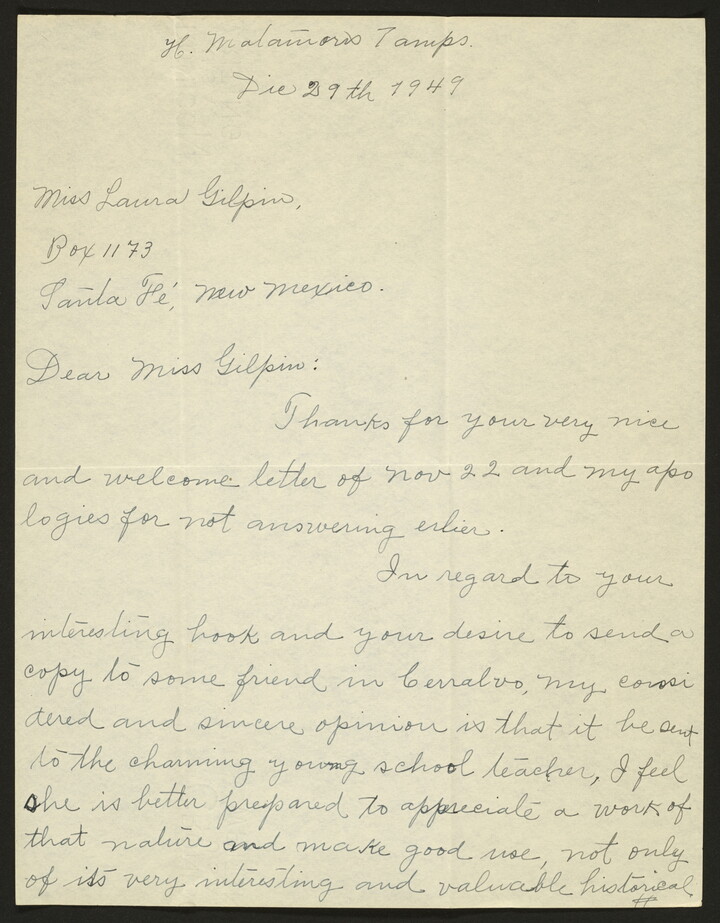 H. Matamoros Tamps.
Dic 29th 1949
Miss Laura Gilpin,
Box 1173
Santa Fé, New Mexico.
Dear Miss Gilpin:
Thanks for your very nice
and welcome letter of Nov 22 and my apo
logies for not answering erlier.
In regard to your
interesting book and your desire to send a
copy to some friend in Cerralvo, my consi
dered and sincere opinion is that it be sent
to the charming young school teacher, I feel
she is better prepared to appreciate a work of
that nature and make good use, not only
of its very interesting and valuable historical